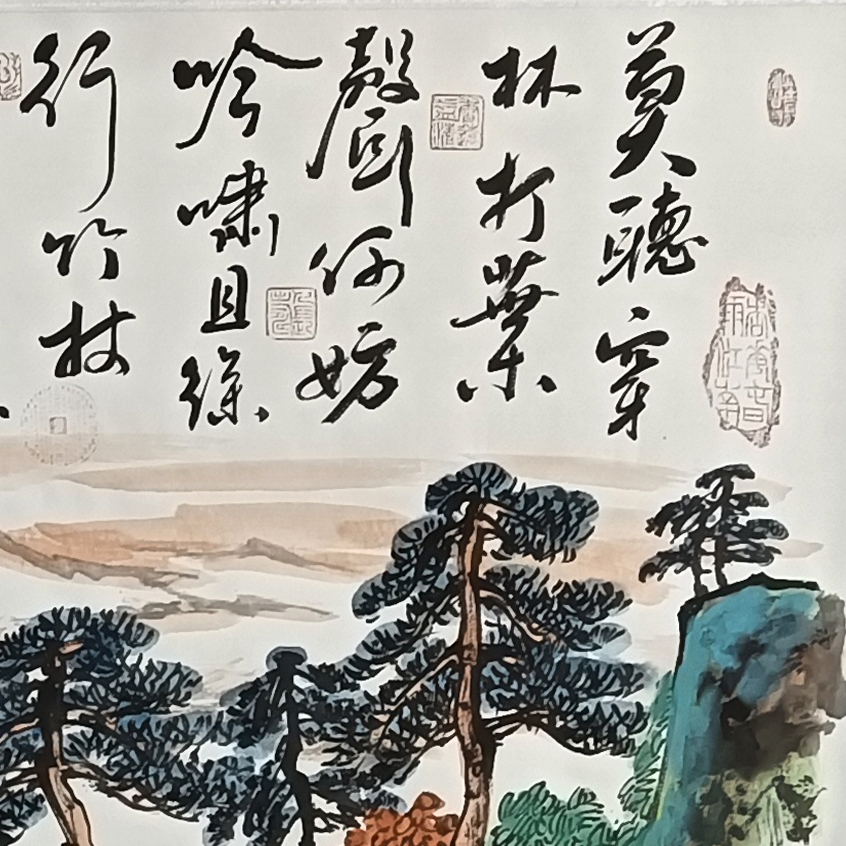 莫聽穿
林打葉
聲何妨
吟嘯且徐
行竹杖